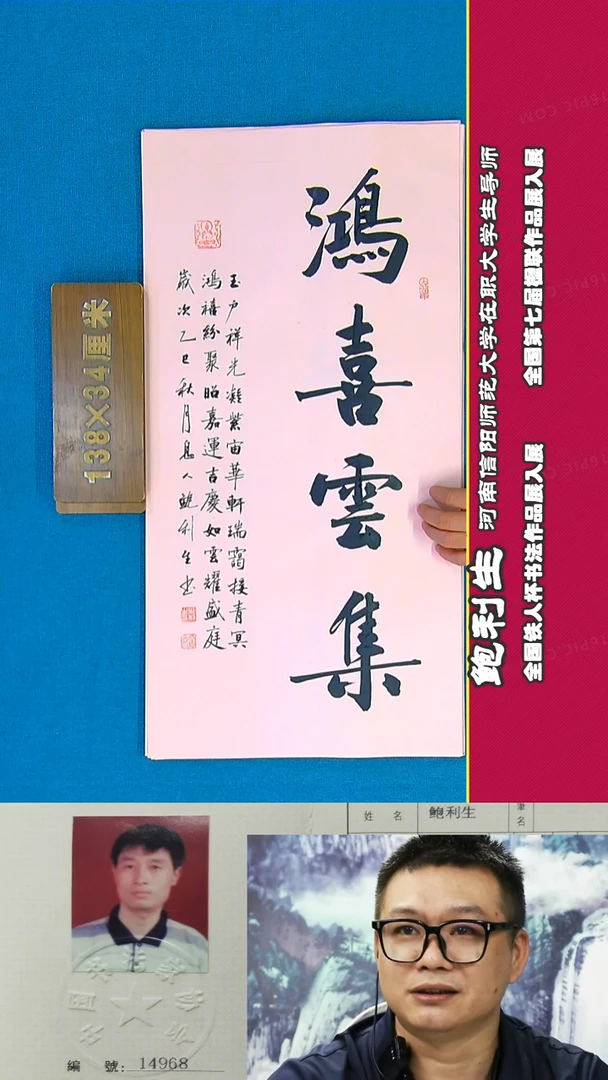 鴻喜雲集
玉户祥光凝紫宙華軒瑞靄接青冥
鴻禧紛聚昭嘉運吉慶如雲耀盛庭
歲次乙巳秋月息人鲍利生书
138×34厘米
鲍利生 河南信阳师范大学在职大学生导师
全国铁人杯书法作品展入展 全国第七届楹联作品展入展
姓名 鲍利生 筆名
編號：14968